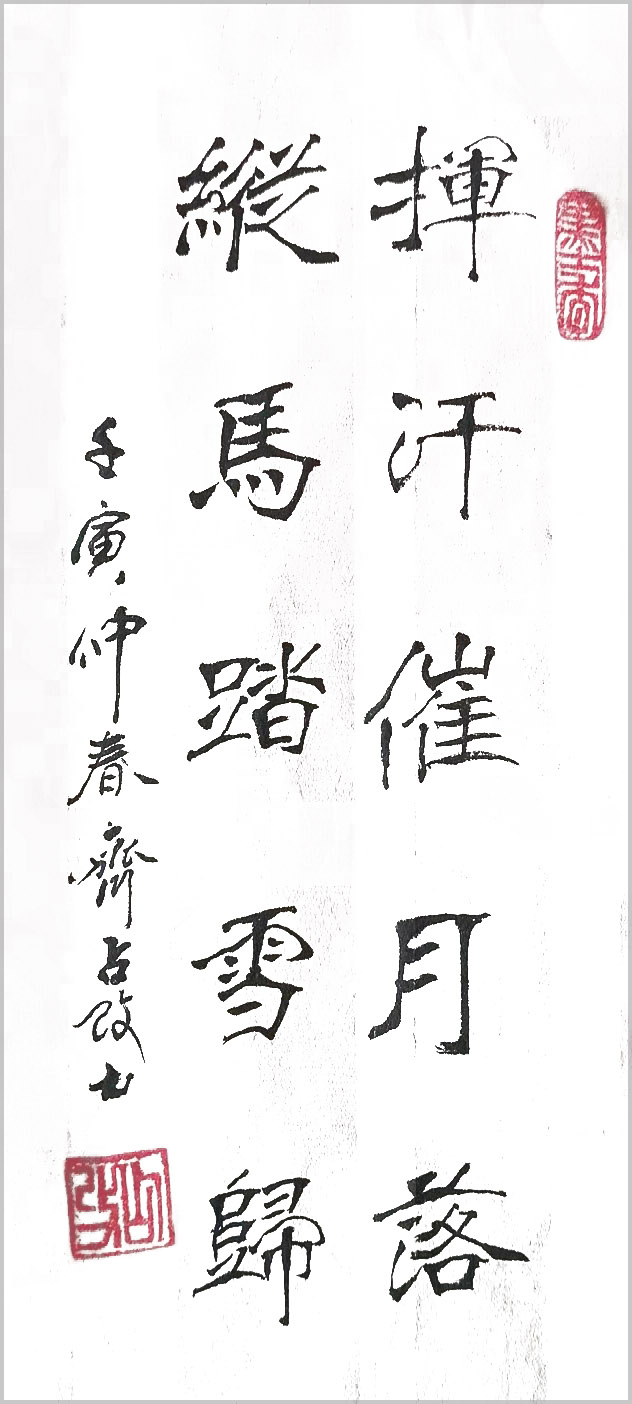 揮汗催月落
縱馬踏雪歸
壬寅仲春齊占改書